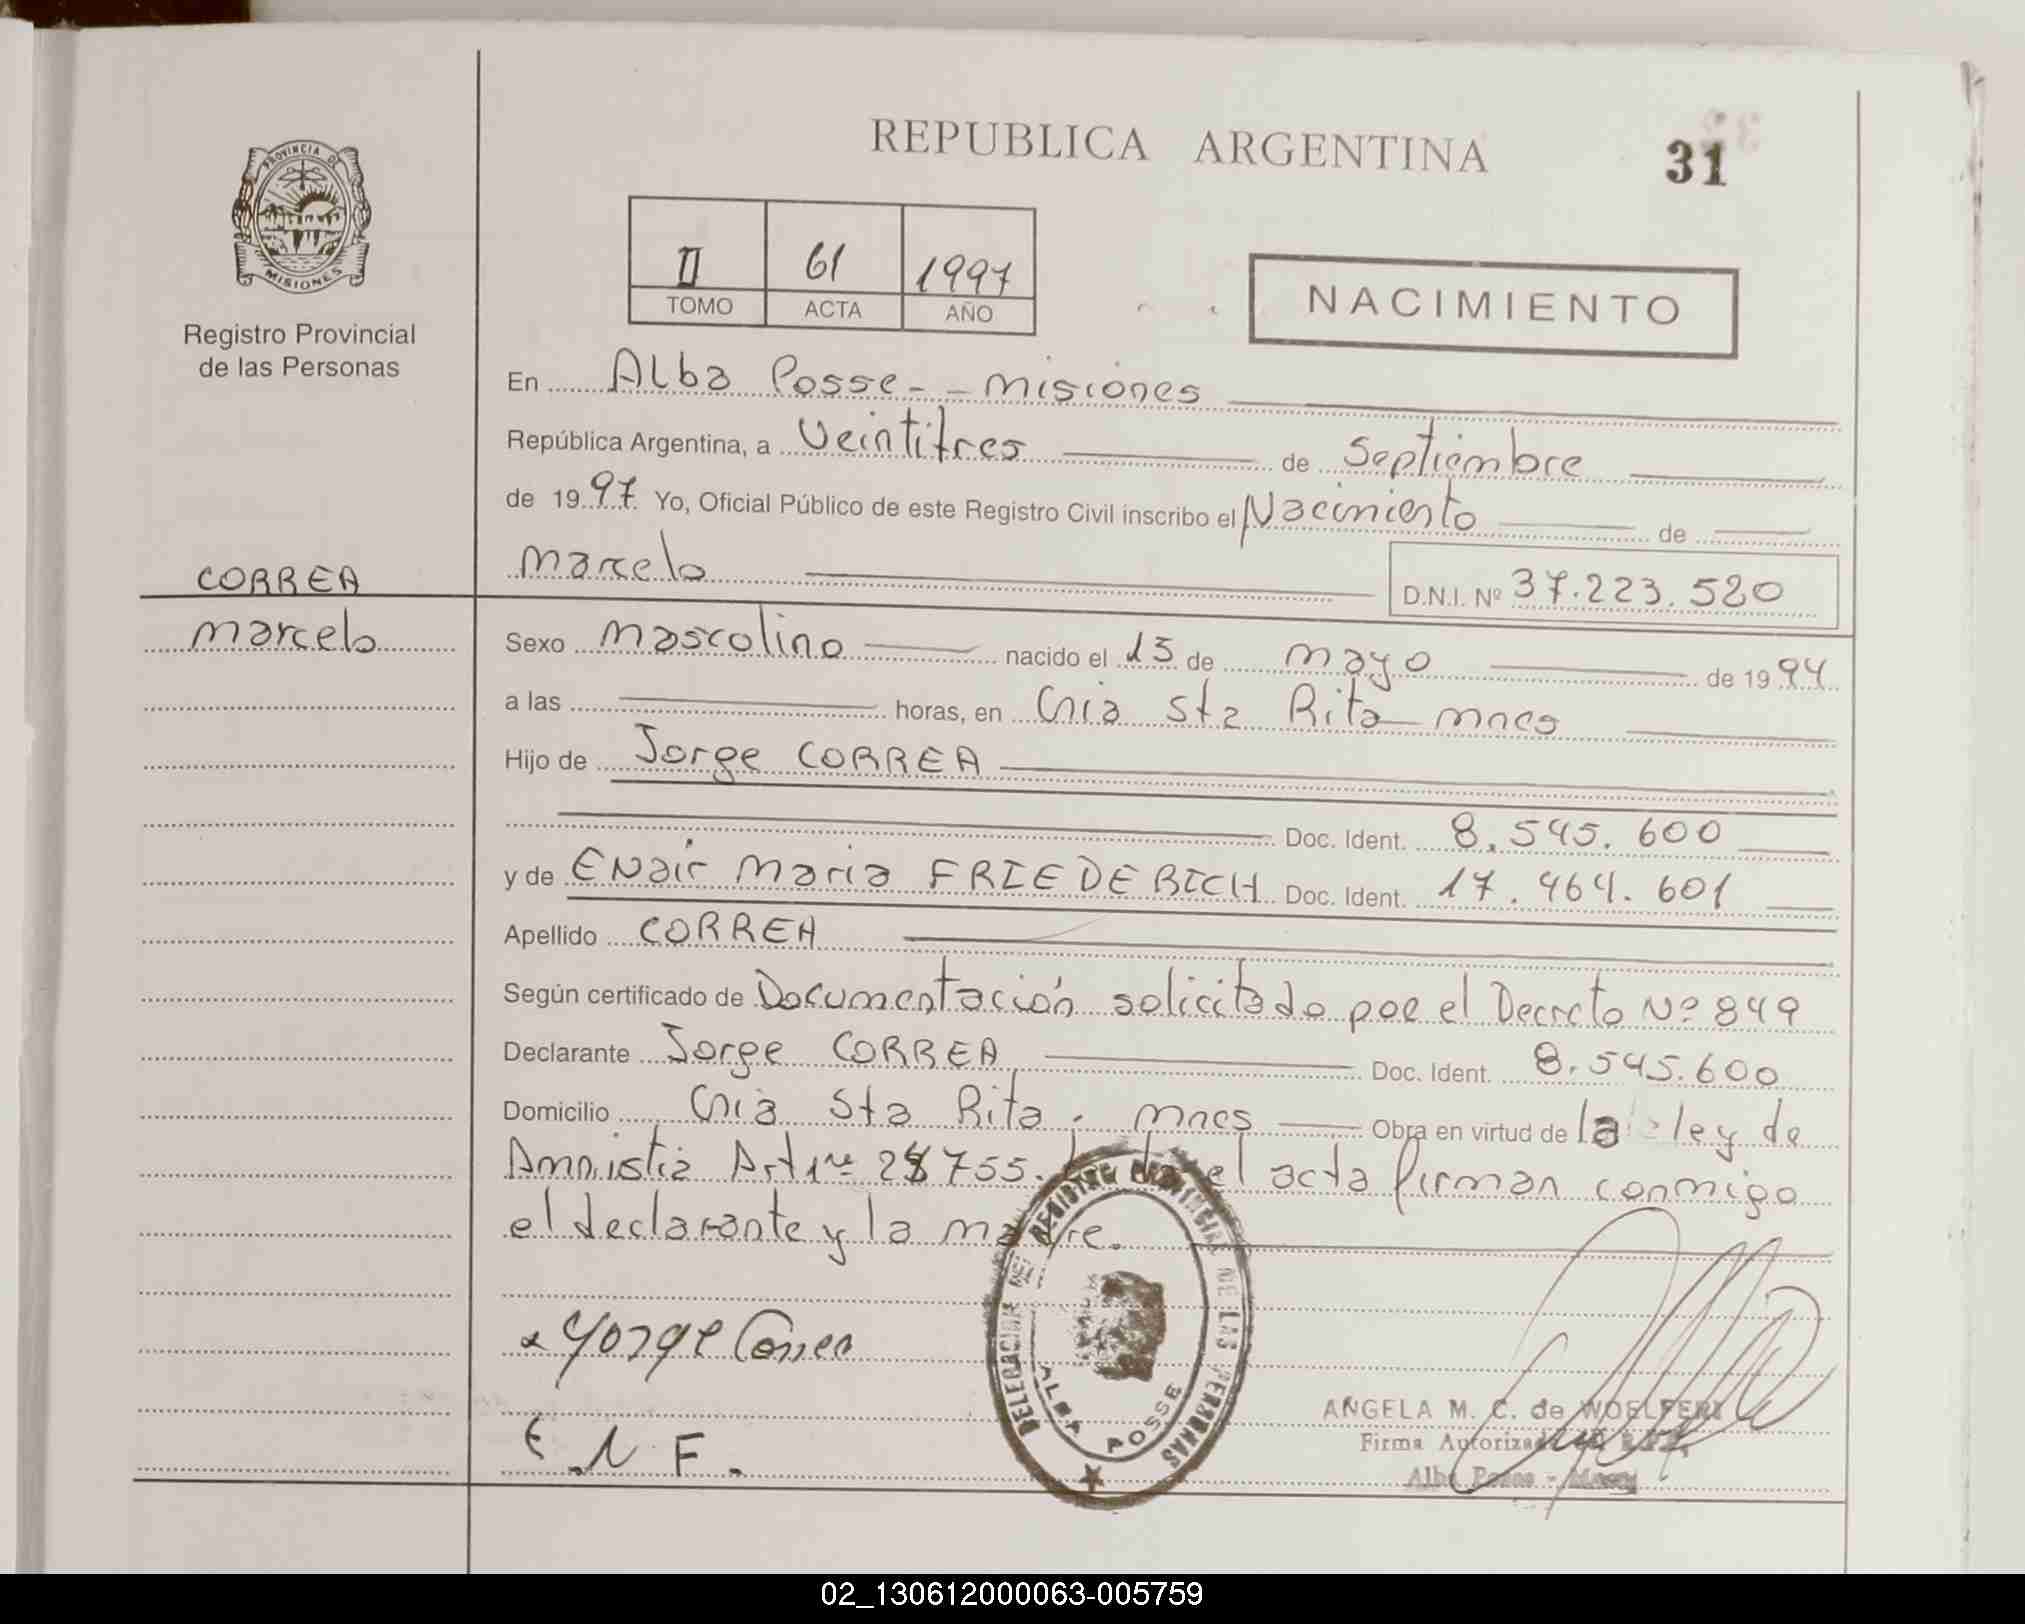 REPUBLICA ARGENTINA
31
PROVINCIA DE
MISIONES
Registro Provincial
de las Personas
II 61 1997
TOMO ACTA AÑO
NACIMIENTO
En Alba Posse - - misiones
República Argentina, a Veintitres de Septiembre
de 1997 Yo, Oficial Público de este Registro Civil inscribo el Nacimiento de
marcelo D.N.I. Nº 37.223.520
CORREA
marcelo
Sexo mascolino nacido el 13 de mayo de 1994
a las horas, en Cnia Sta Rita mnes
Hijo de Jorge CORREA
Doc. Ident. 8.545.600
y de ENair maria FRIEDERICH Doc. Ident. 17.464.601
Apellido CORREA
Según certificado de Documentación solicitado por el Decreto Nº 849
Declarante Jorge CORREA Doc. Ident. 8.545.600
Domicilio Cnia Sta Rita. mnes Obra en virtud de la ley de
Amnistia Art 1º 755. el acta firman conmigo
el declarante y la madre.
Yorge Correa
E.N.F.
DELEGACION DEL REGISTRO PROVINCIAL DE LAS PERSONAS
ALBA POSSE
ANGELA M. C. de
Firma Autorizada
Alba Posse -
02_130612000063-005759